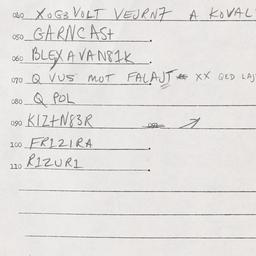 040 XOG3 VOLT VEJRN7 A KOVAL
050 GARNCASt
060 BLEXAVAN81K
070 Q VUS MOT FALAJT XX QED LAJ
080 Q POL
090 KIZtN83R
100 FRIZIRA
110 RIZURI